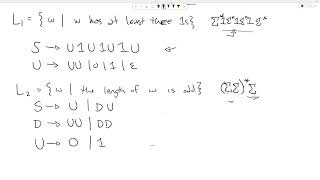 L₁ = { w | w has at least three 1s} Σ*1Σ*1Σ*1Σ*
S → U1U1U1U
U → UU | 0 | 1 | ε
L₂ = { w | the length of w is odd} (ΣΣ)*Σ
S → U | DU
D → UU | DD
U → 0 | 1